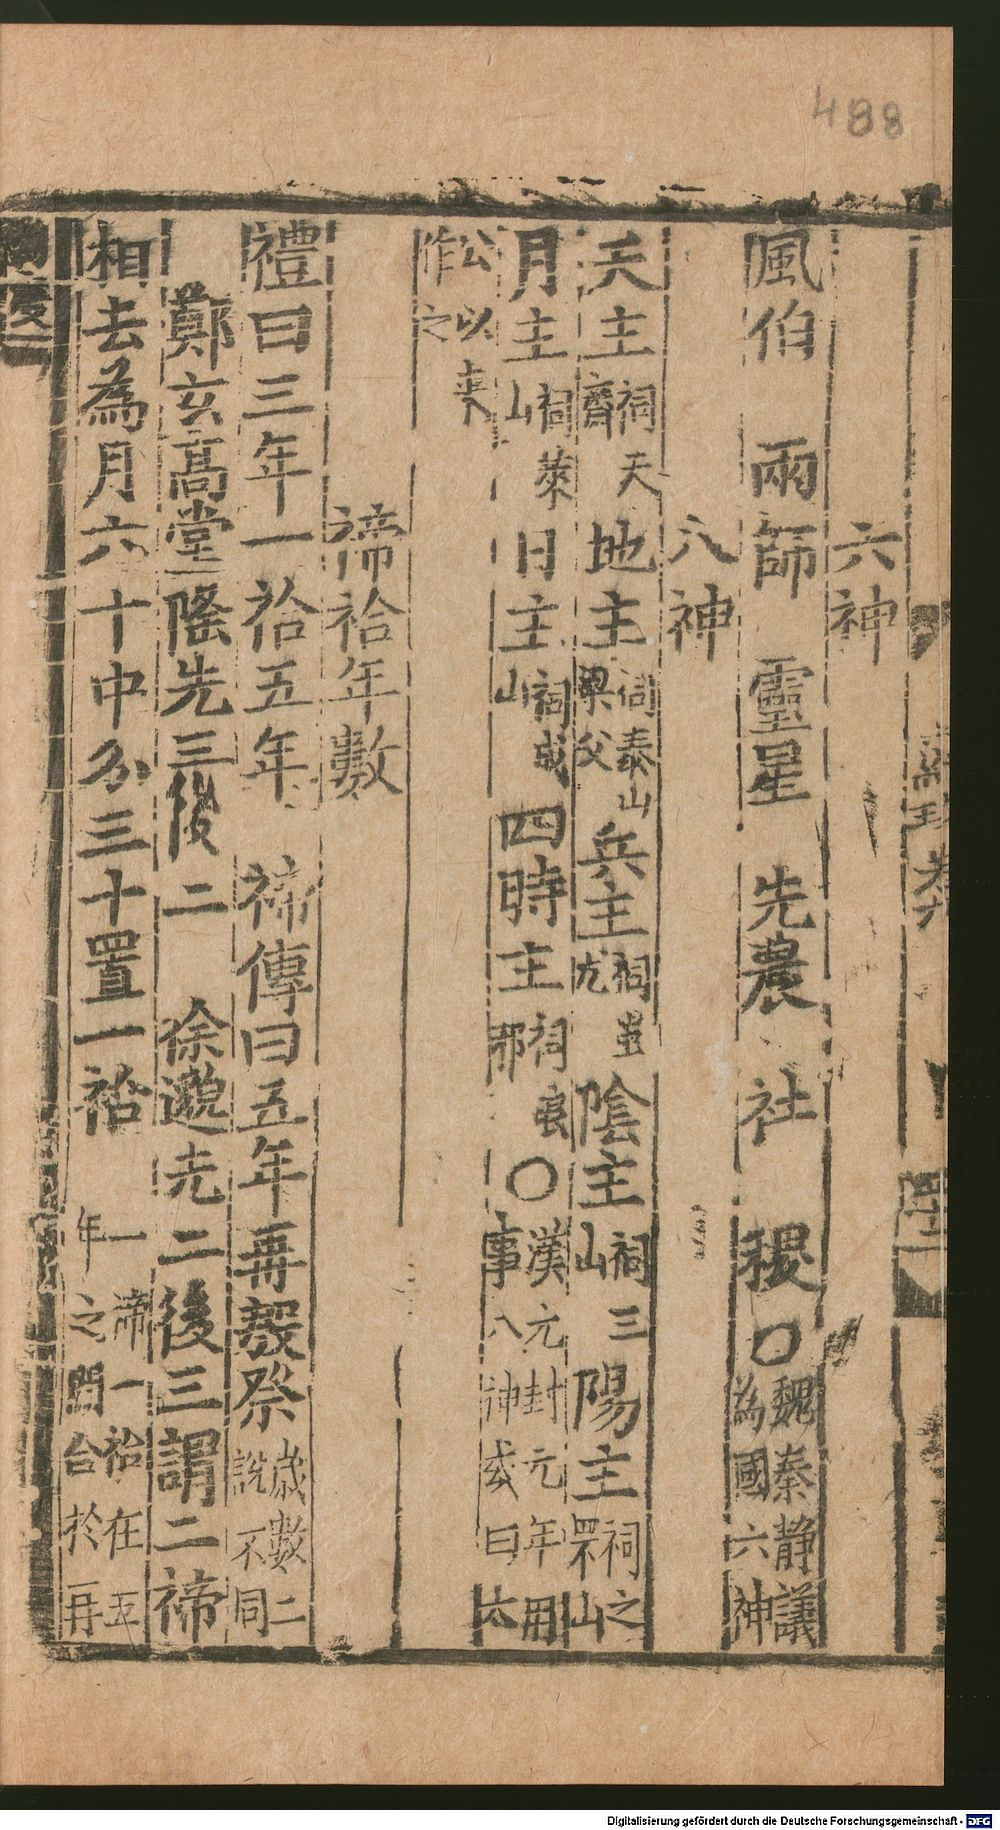 488
六神
風伯　雨師　靈星　先農　社　稷〇魏秦静議為國六神
八神
天主祠天齊　地主祠泰山梁父　兵主祠蚩尤　陰主祠三山　陽主祠之罘山
月主祠萊山　日主祠成山　四時主祠琅邪〇漢元封元年用事八神或曰太
公以來作之
禘祫年數
禮曰三年一祫五年　禘傳曰五年再殷祭歲數二說不同
鄭玄高堂隆先三後二　徐邈先二後三謂二禘
相去為月六十中分三十置一祫　一禘一祫在五年之間合於再
Digitalisierung gefördert durch die Deutsche Forschungsgemeinschaft - DFG